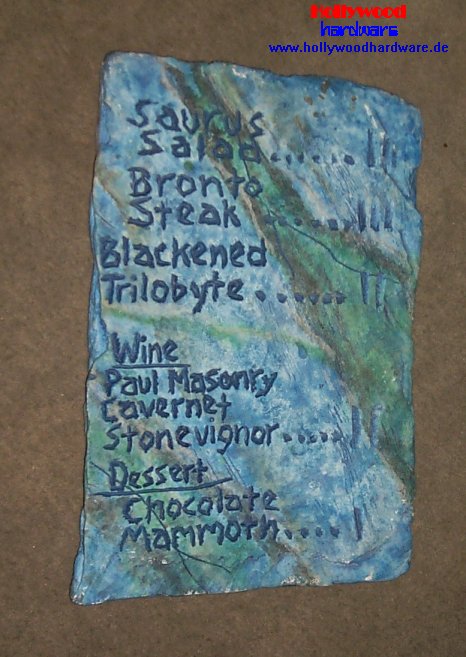 Hollywood
hardware
www.hollywoodhardware.de
Saurus
Salad...... III
Bronto
Steak ...... III
Blackened
Trilobyte ...... II
Wine
Paul Masonry
Cavernet
Stonevignor.... II
Dessert
Chocolate
Mammoth.... I